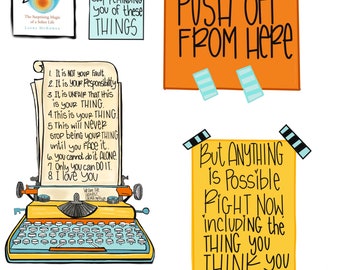 The Surprising Magic
of a Sober Life
LAURA McKOWEN
you of these
THINGS
PUSH OFF
FROM HERE
1. IT is NOT YOUR fault.
2. IT is YOUR RESPONSIBILITY.
3. IT is UNFAIR THAT THIS
is YOUR THING.
4. THIS is YOUR THING.
5. THIS will NEVER
STOP being YOUR THING
until YOU FACE IT.
6. YOU cannot do it ALONE.
7. ONLY YOU CAN DO IT.
8. I LOVE YOU
But ANYTHING
is Possible
RIGHT NOW
including THE
THING YOU
THINK YOU